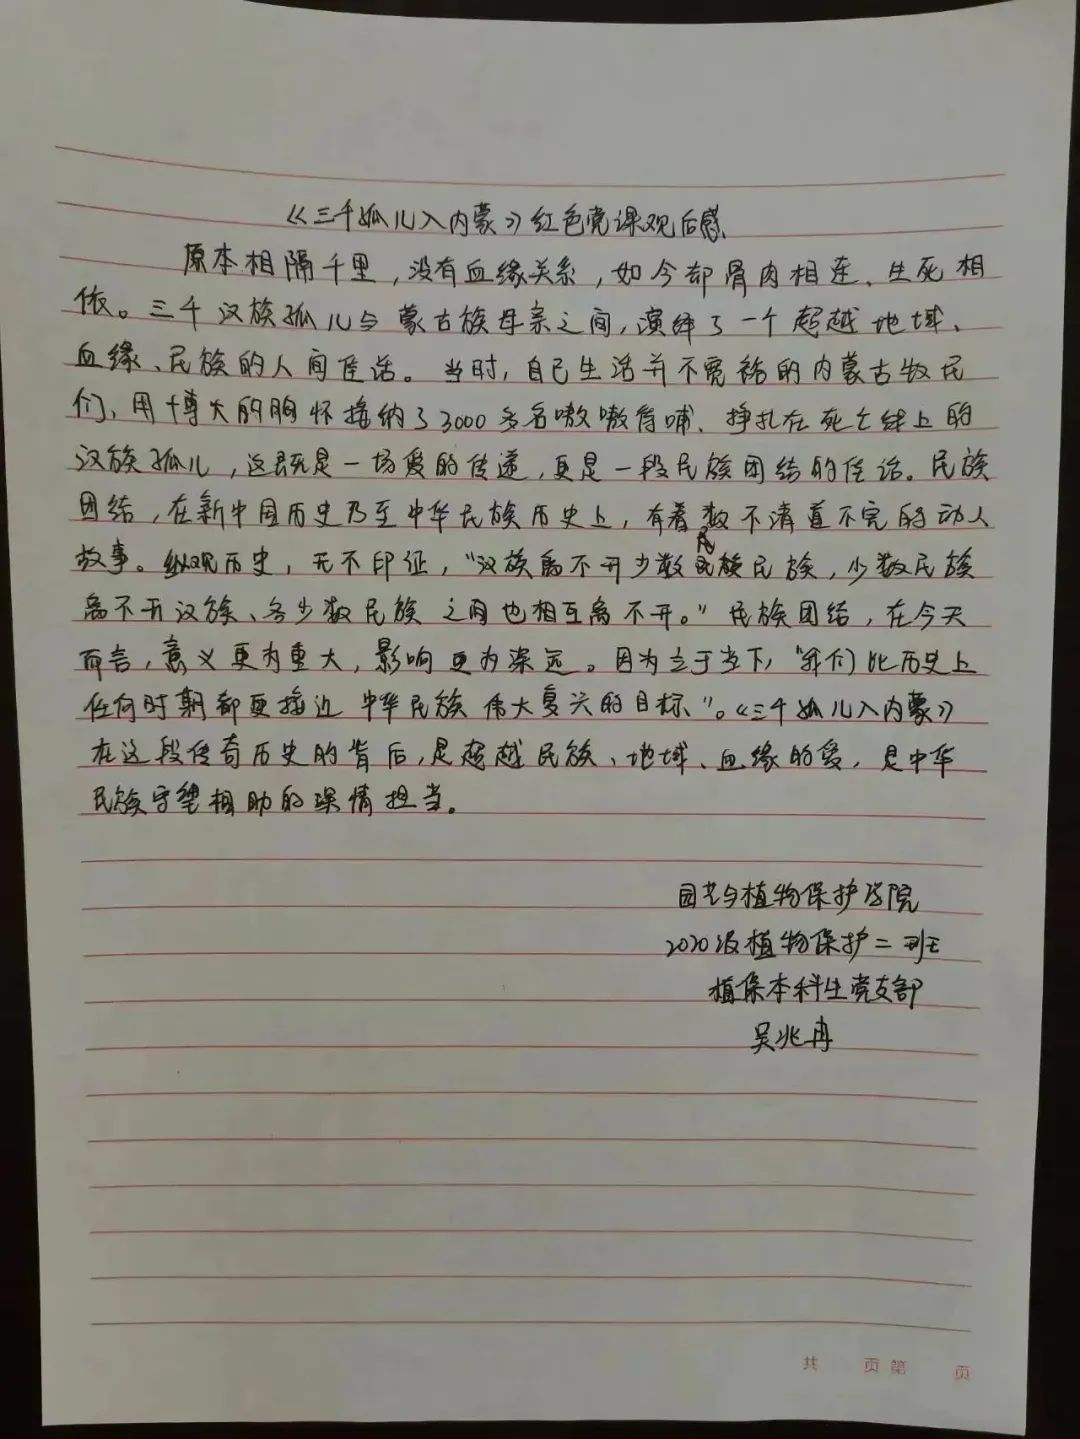 《三千孤儿入内蒙》红色党课观后感
原本相隔千里，没有血缘关系，如今却骨肉相连、生死相
依。三千汉族孤儿与蒙古族母亲之间，演绎了一个超越地域、
血缘、民族的人间佳话。当时，自己生活并不宽裕的内蒙古牧民
们，用博大的胸怀接纳了3000多名嗷嗷待哺、挣扎在死亡线上的
汉族孤儿，这既是一场爱的传递，更是一段民族团结的佳话。民族
团结，在新中国历史乃至中华民族历史上，有着数不清道不完的动人
故事。纵观历史，无不印证，“汉族离不开少数民族，少数民族
离不开汉族、各少数民族之间也相互离不开。”民族团结，在今天
而言，意义更为重大，影响更为深远。因为立于当下，“我们比历史上
任何时期都更接近中华民族伟大复兴的目标”。《三千孤儿入内蒙》
在这段传奇历史的背后，是超越民族、地域、血缘的爱，是中华
民族守望相助的深情担当。
园艺与植物保护学院
2020级植物保护二班
植保本科生党支部
吴兆冉
共 页 第 页